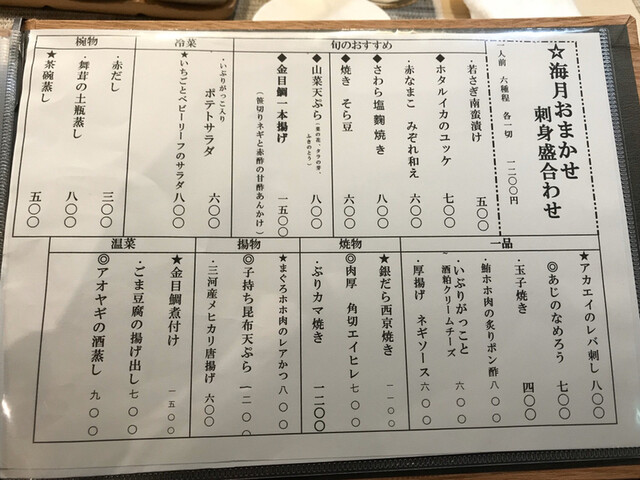 ☆海月おまかせ
刺身盛合わせ
一人前 六種程 各一切 一二〇〇円
旬のおすすめ
・若さぎ南蛮漬け 五〇〇
◆ホタルイカのユッケ 七〇〇
・赤なまこ みぞれ和え 六〇〇
◆さわら塩麴焼き 八〇〇
◆焼き そら豆 六〇〇
◆山菜天ぷら(菜の花、タラの芽、ふきのとう) 八〇〇
◆金目鯛一本揚げ 一五〇〇
(笹切りネギと赤酢の甘酢あんかけ)
冷菜
・いぶりがっこ入り
ポテトサラダ 六〇〇
★いちごとベビーリーフのサラダ 八〇〇
椀物
・赤だし 三〇〇
・舞茸の土瓶蒸し 八〇〇
★茶碗蒸し 五〇〇
一品
★アカエイのレバ刺し 八〇〇
◎あじのなめろう 七〇〇
・玉子焼き 四〇〇
・鮪ホホ肉の炙りポン酢 八〇〇
・いぶりがっこと
酒粕クリームチーズ 六〇〇
・厚揚げ ネギソース 六〇〇
焼物
★銀だら西京焼き 一一〇〇
◎肉厚 角切エイヒレ 七〇〇
・ぶりカマ焼き 一二〇〇
揚物
★まぐろホホ肉のレアかつ 八〇〇
◎子持ち昆布天ぷら 一二〇〇
・三河産メヒカリ唐揚げ 六〇〇
温菜
★金目鯛煮付け 一五〇〇
・ごま豆腐の揚げ出し 七〇〇
◎アオヤギの酒蒸し 九〇〇